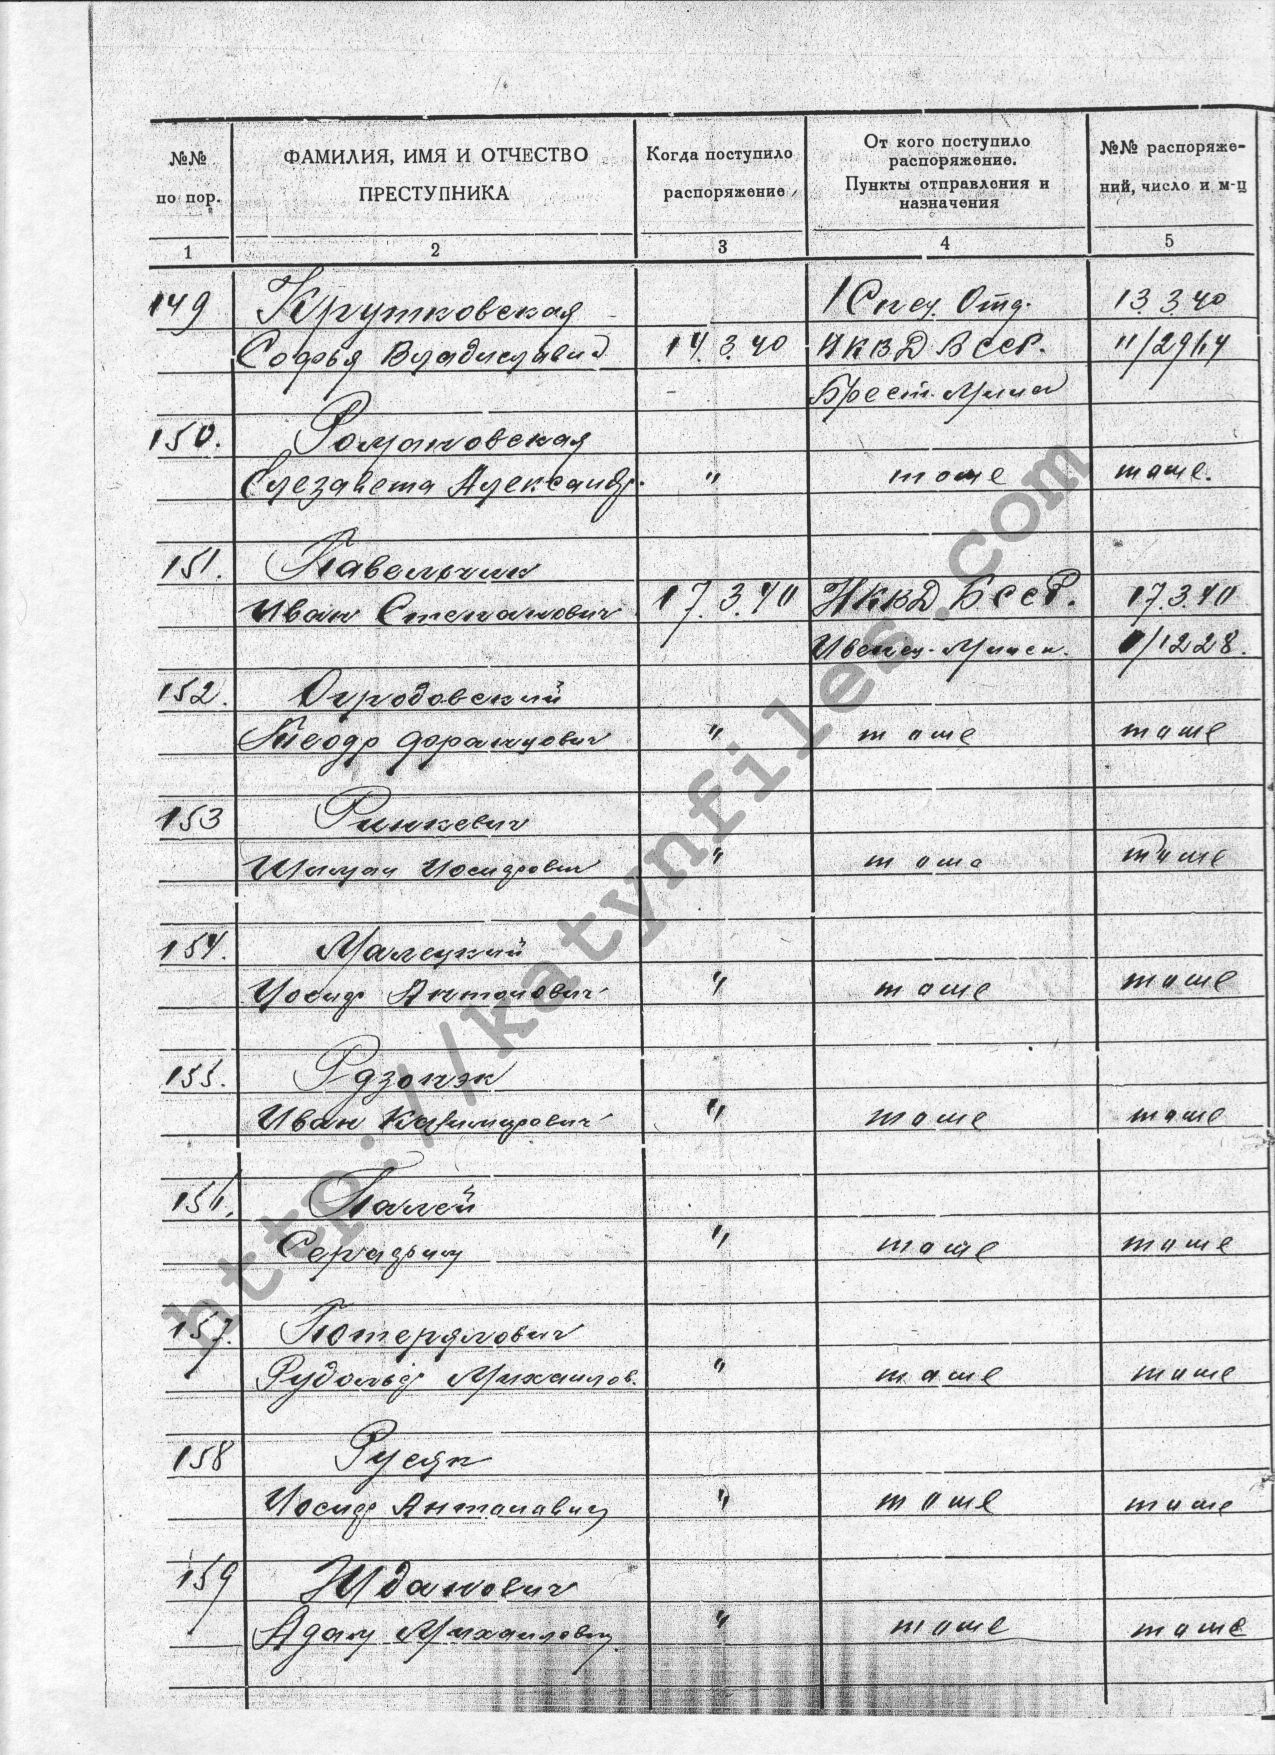 №№ по пор.
ФАМИЛИЯ, ИМЯ И ОТЧЕСТВО ПРЕСТУПНИКА
Когда поступило распоряжение
От кого поступило распоряжение. Пункты отправления и назначения
№№ распоряже- ний, число и м-ц
1 2 3 4 5
149 Крутковская 1 Спец. Отд. 13.3.40
Софья Владиславна 14.3.40 НКВД БССР. 11/2914
Брест-Минск
150. Романовская
Елезавета Александр. " тоже тоже.
151. Павельчик
Иван Степанович 17.3.40 НКВД БССР. 17.3.40
Ивенец-Минск. 1/1228.
152. Огродовский
Теодр Францович " тоже тоже
153 Ринкевич
Шиман Иосифович " тоже тоже
154. Малецкий
Иосиф Антонович " тоже тоже
155. Рдзонэк
Иван Казимирович " тоже тоже
156. Палей
Серафим " тоже тоже
157. Потерялович
Рудольф Михайлов. " тоже тоже
158 Русяк
Иосиф Антанавич " тоже тоже
159 Жданович
Адам Михайлович " тоже тоже
http://katynfiles.com